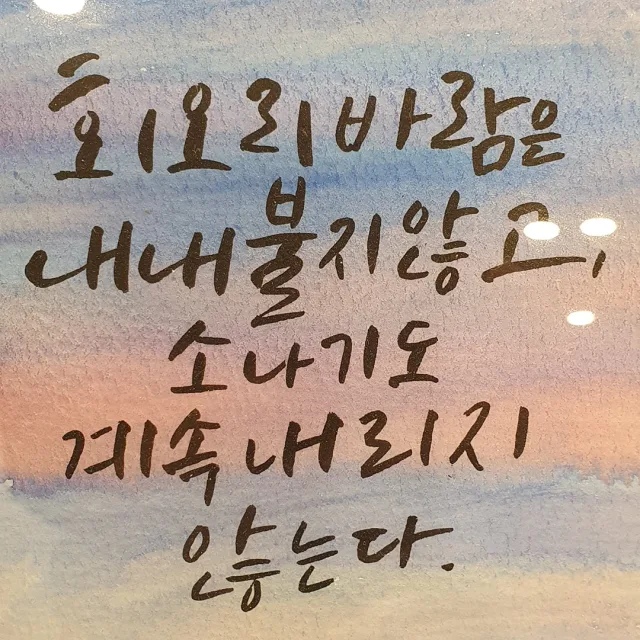 회오리바람은
내내불지않고,
소나기도
계속내리지
않는다.